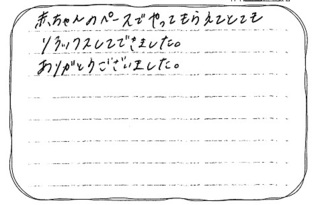 赤ちゃんのペースでやってもらえてとても
リラックスしてできました。
ありがとうございました。